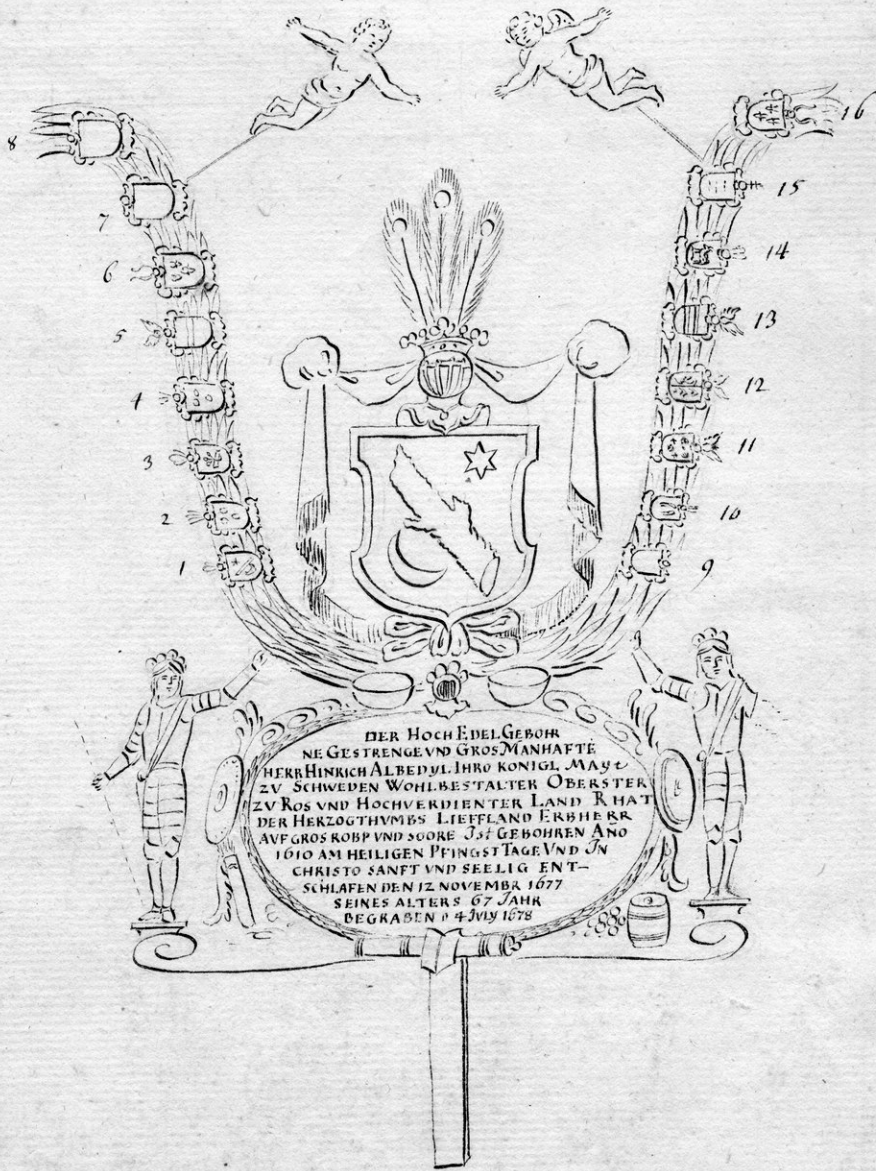 8
7
6
5
4
3
2
1
16
15
14
13
12
11
10
9
DER HOCH EDEL GEBOHR
NE GESTRENGE VND GROS MANHAFTE
HERR HINRICH ALBEDYL IHRO KONIGL MAYt
ZV SCHWEDEN WOHLBESTALTER OBERSTER
ZV ROS VND HOCHVERDIENTER LAND RHAT
DER HERZOGTHVMBS LIEFFLAND ERBHERR
AVF GROS ROBP VND SOORE Ist GEBOHREN AÑO
1610 AM HEILIGEN PFINGST TAGE VND IN
CHRISTO SANFT VND SEELIG ENT–
SCHLAFEN DEN 12 NOVEMBR 1677
SEINES ALTERS 67 JAHR
BEGRABEN D 4 JVLY 1678